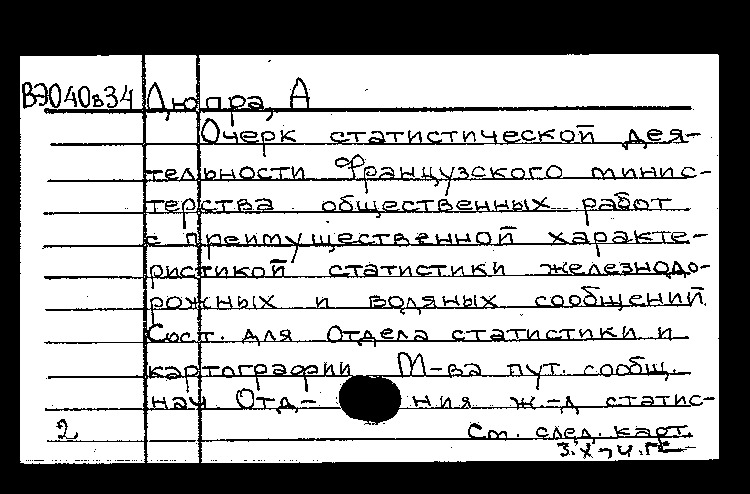 ВЭ040в34 Дюпра, А
Очерк статистической дея-
тельности Французского минис-
терства общественных работ
с преимущественной характе-
ристикой статистики железнодо-
рожных и водяных сообщений
Сост. для Отдела статистики и
картографии М-ва пут. сообщ.
нач. Отд- ния ж.-д статис-
2 См. след. карт.